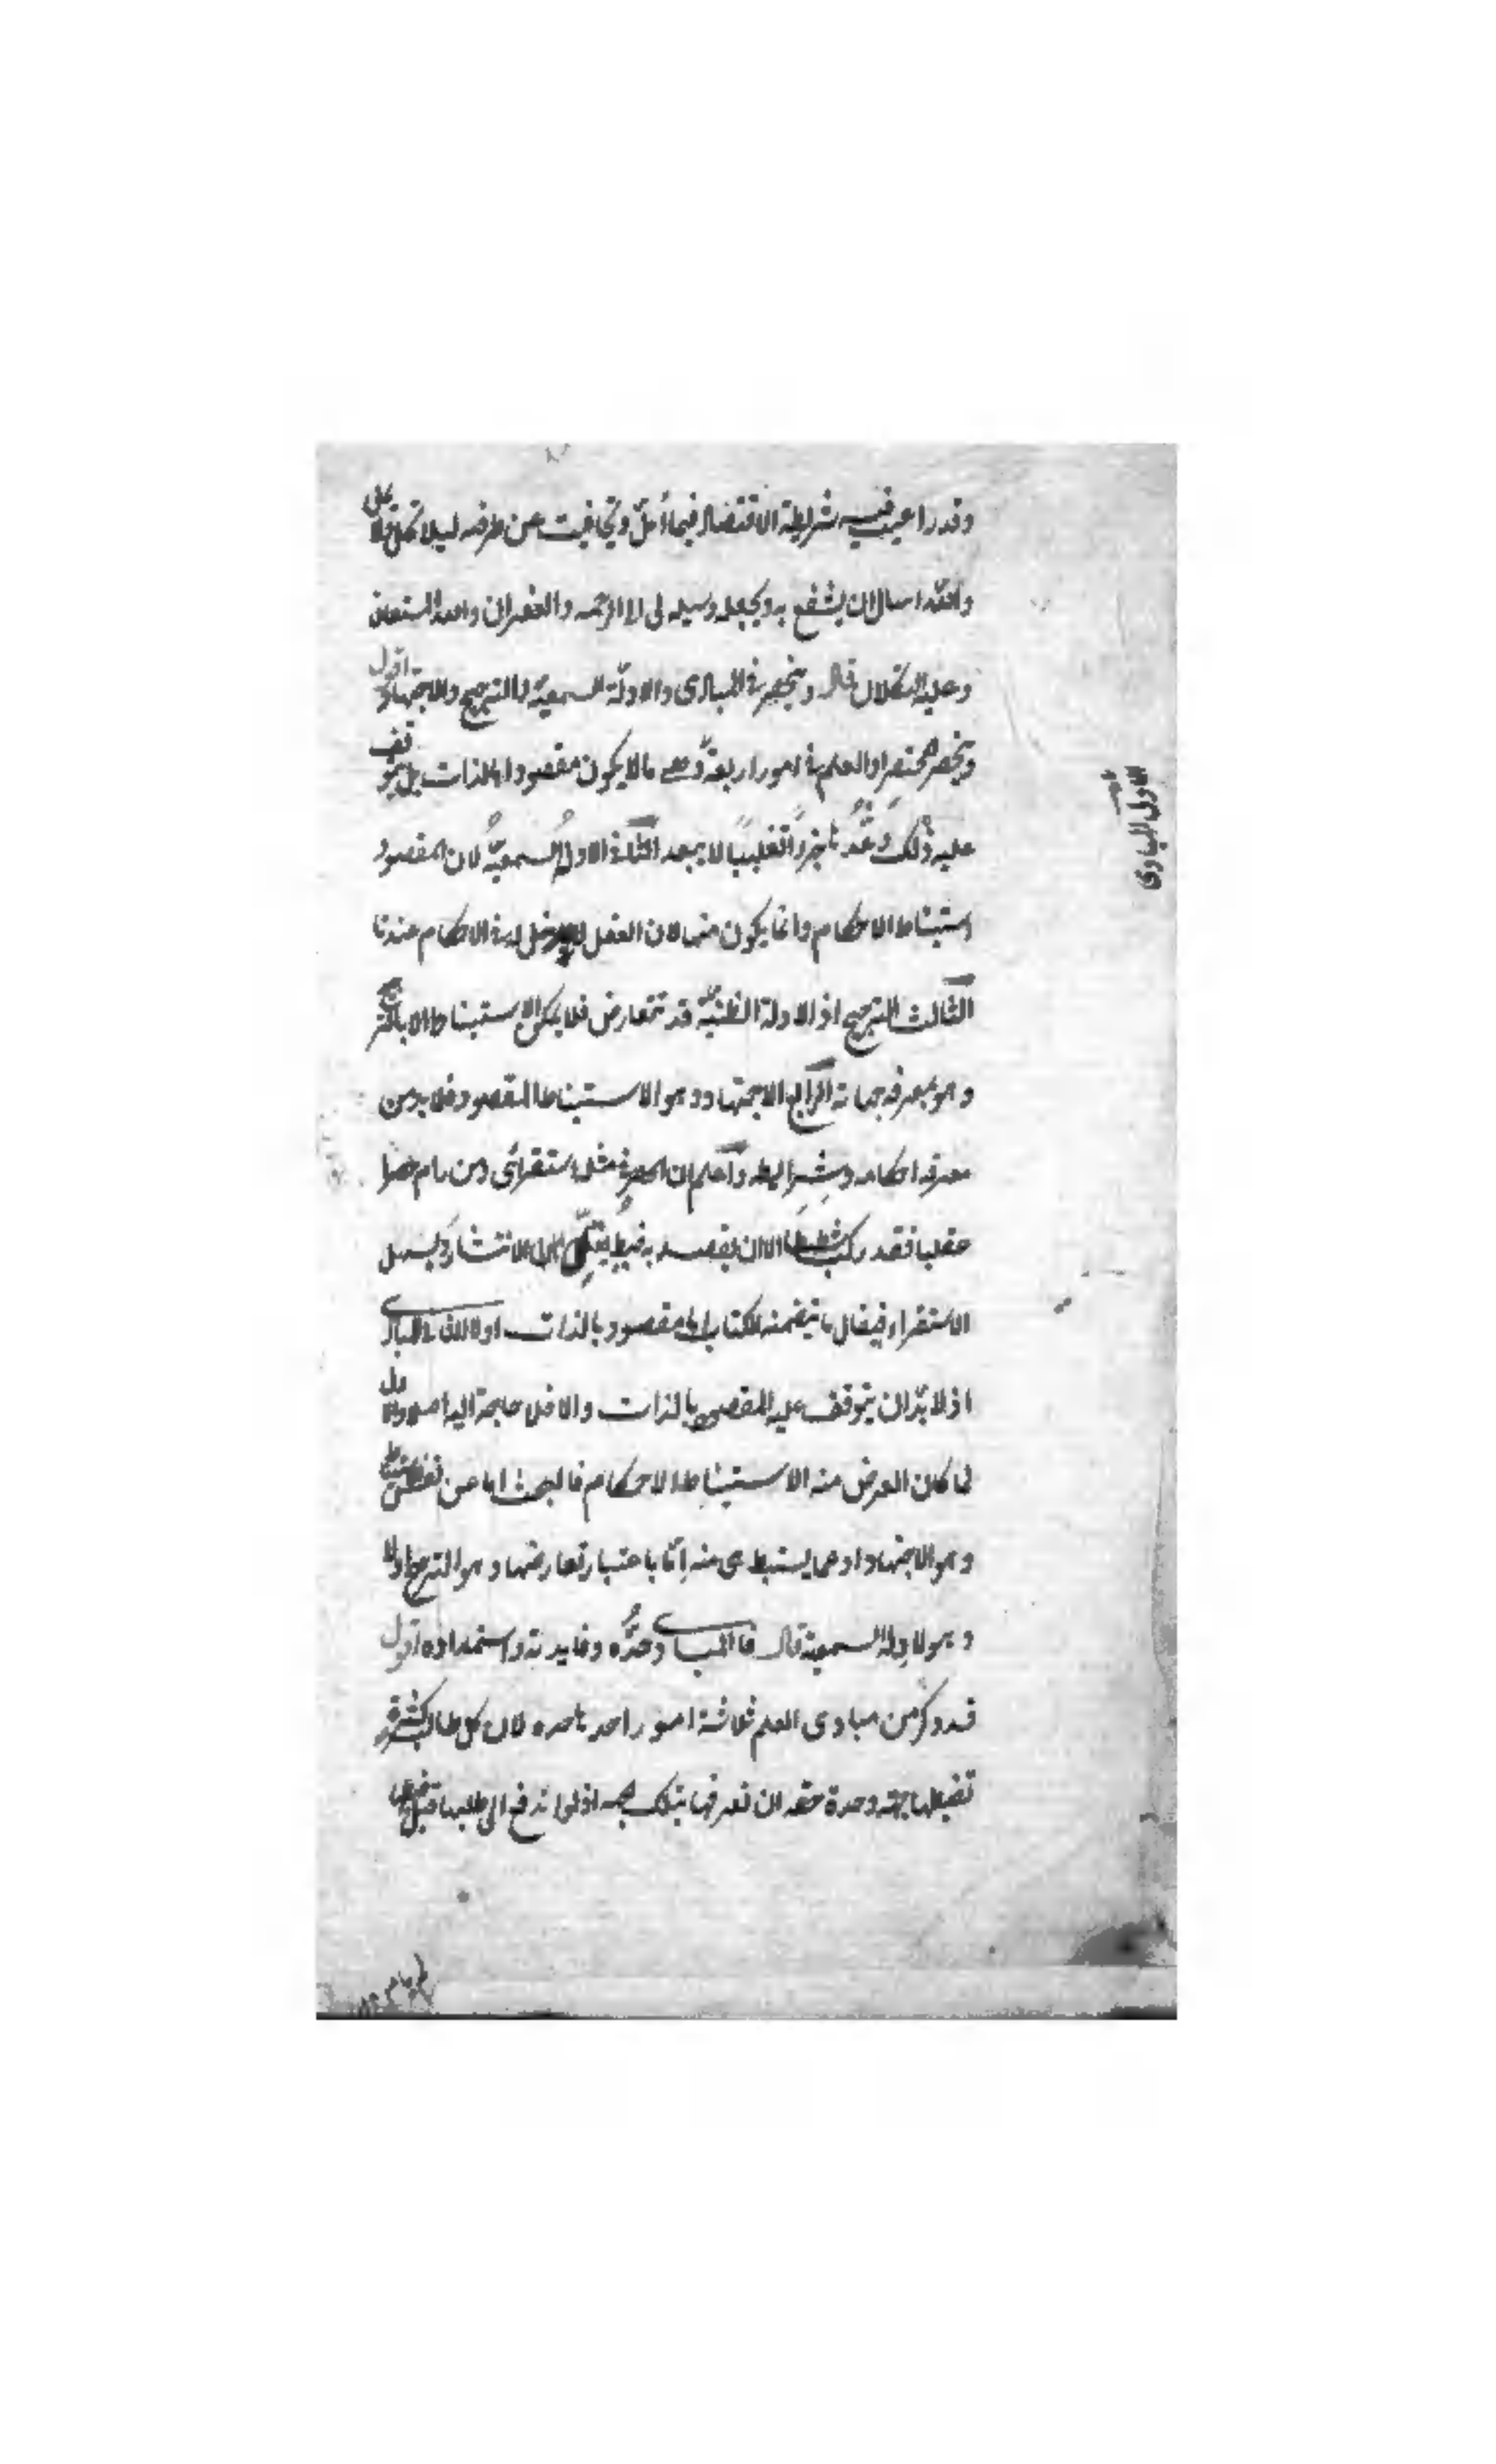 وقد راعيت فيه شريطة الاقتصاد فيما أمل وتجافيت عن طرفيه ليلا تمل
والله اسال ان ينفع به ويجعله وسيلة لى الى الرحمه والغفران والله المستعان
وعليه التكلان قال وينحصر فى المبادى والادلة السمعية والترجيح والاجتهاد اقول
وينحصر المختصر او العلم فى امور اربعة وهى مالا يكون مقصودا بالذات بل يتوقف
عليه ذلك وعد جزءا تغليبا لا يبعد الثانى الادلة السمعية لان المقصود
استنباط الاحكام وانما يكون منها لان العقل لا مدخل له فى الاحكام عندنا
الثالث الترجيح اذ الادلة الظنية قد تتعارض فلا يمكن الاستنباط الا بالترجيح
وهو بمعرفة جهاته الرابع الاجتهاد وهو الاستنباط المقصود فلا بد من
معرفة احكامه وشرايطه واعلم ان الحصر فى مثله استقرائى ومن رام حصرا
عقليا فقد ركب شططا الا ان يقصد به ضبط يقلل الانتشار ويسهل
الاستقراء فيقال ما يتضمنه الكتاب اما مقصود بالذات اولا الثانى المبادى
اذ لا بد ان يتوقف عليه المقصود بالذات والا فلا حاجة اليه اصلا والاول
لما كان الغرض منه الاستنباط الاحكام فالبحث اما عن نفس الاستنباط
وهو الاجتهاد او عما يستنبط هى منه اما باعتبار تعارضها وهو الترجيح اولا
وهو الادلة السمعية قال فالمبادى حده وفايدته واستمداده اقول
قد ذكر من مبادى العلم ثلاثة امور احدها حده لان كل طالب كثرة
تضبطها جهة وحدة حقه ان يعرفها بتلك الجهة اذ لو اندفع الى طلبها قبل ضبطها
الاول المبادى